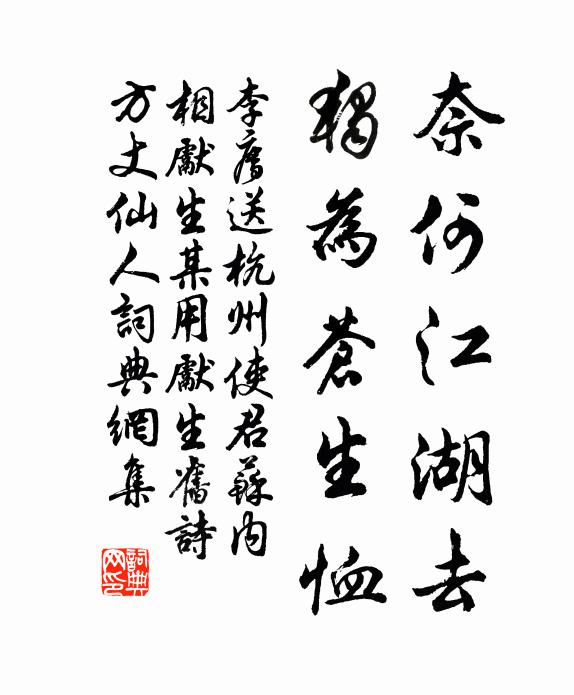 奈何江湖去
獨為蒼生恤
李廌送杭州使君蘇內
相獻生某用獻生舊詩
方丈仙人詞典網集
詞典网印